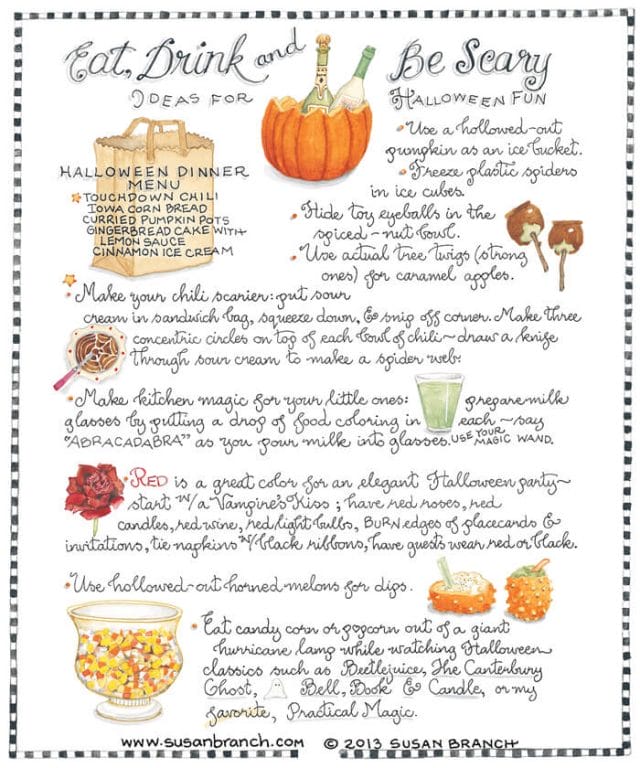 Eat, Drink and Be Scary
IDEAS FOR HALLOWEEN FUN
• Use a hollowed-out
pumpkin as an ice bucket.
• Freeze plastic spiders
in ice cubes.
HALLOWEEN DINNER
MENU
TOUCHDOWN CHILI
IOWA CORN BREAD
CURRIED PUMPKIN POTS
GINGERBREAD CAKE WITH
LEMON SAUCE
CINNAMON ICE CREAM
• Hide toy eyeballs in the
spiced-nut bowl.
• Use actual tree twigs (strong
ones) for caramel apples.
• Make your chili scarier: put sour
cream in sandwich bag, squeeze down, & snip off corner. Make three
concentric circles on top of each bowl of chili ~ draw a knife
through sour cream to make a spider web.
• Make kitchen magic for your little ones: prepare milk
glasses by putting a drop of food coloring in each ~ say
"ABRACADABRA" as you pour milk into glasses. USE YOUR
MAGIC WAND.
• RED is a great color for an elegant Halloween party ~
start w/a Vampire's Kiss; have red roses, red
candles, red wine, red light bulbs, BURN edges of placecards &
invitations, tie napkins w/black ribbons, have guests wear red or black.
• Use hollowed-out horned melons for dips.
• Eat candy corn or popcorn out of a giant
hurricane lamp while watching Halloween
classics such as Beetlejuice, The Canterbury
Ghost, Bell, Book & Candle, or my
favorite, Practical Magic.
www.susanbranch.com © 2013 SUSAN BRANCH